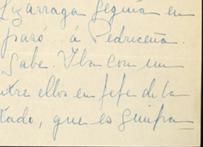 Lizarraga seguía en
paró á Pedriceña.
Sabe. Iba con un
tre ellos en jefe de la
tado, que es guipu